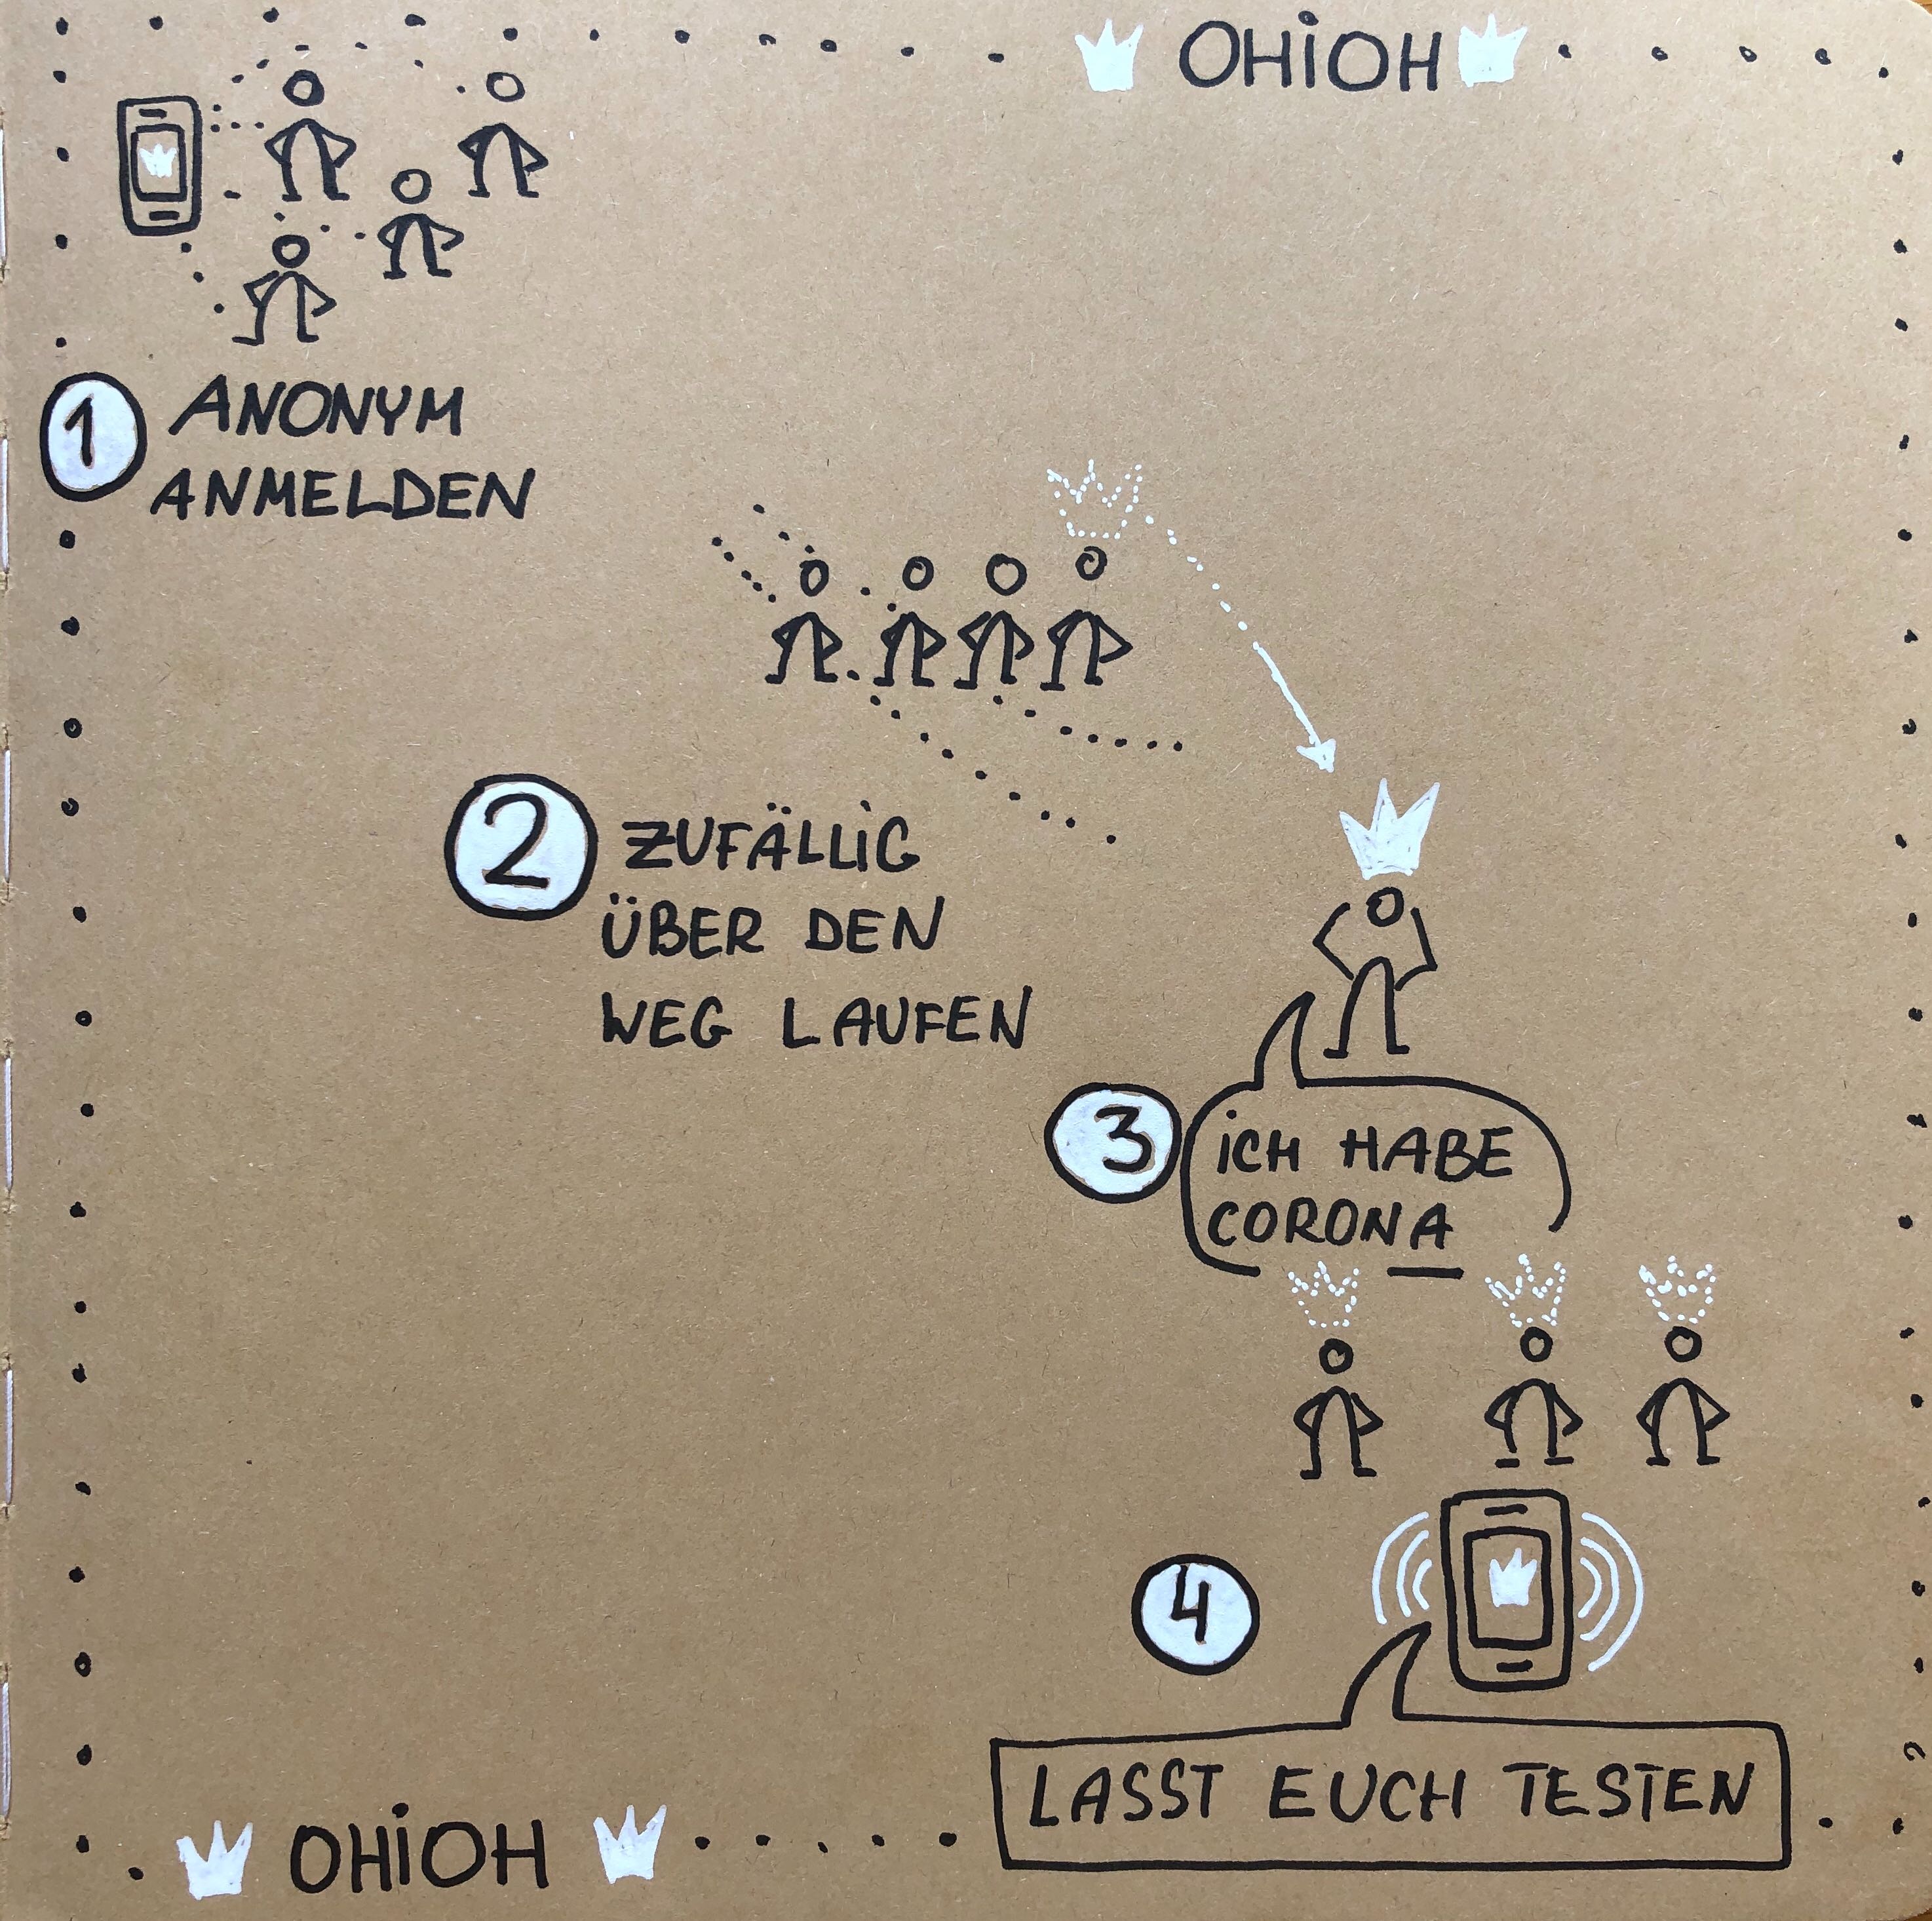 OHiOH
1 ANONYM
ANMELDEN
2 ZUFÄLLiG
ÜBER DEN
WEG LAUFEN
3 iCH HABE
CORONA
4
LASST EUCH TESTEN
OHiOH